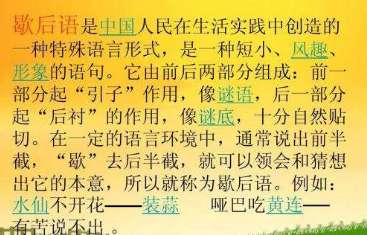 歇后语是中国人民在生活实践中创造的
一种特殊语言形式，是一种短小、风趣、
形象的语句。它由前后两部分组成：前一
部分起“引子”作用，像谜语，后一部分
起“后衬”的作用，像谜底，十分自然贴
切。在一定的语言环境中，通常说出前半
截，“歇”去后半截，就可以领会和猜想
出它的本意，所以就称为歇后语。例如：
水仙不开花——装蒜 哑巴吃黄连—
有苦说不出。